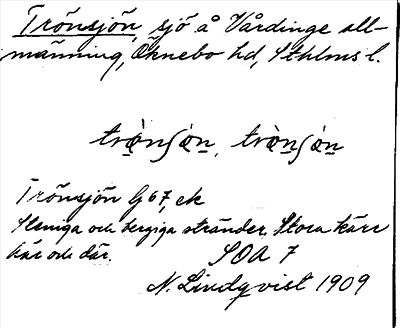 Trönsjön, sjö å Vårdinge all-
männing, Öknebo hd, Sthlms l.
trö̀nʃön, trö̀nʃön
Trönsjön G 67, ek
Steniga och bergiga stränder. Stora kärr
här och där. SOA 7
N. Lindqvist 1909